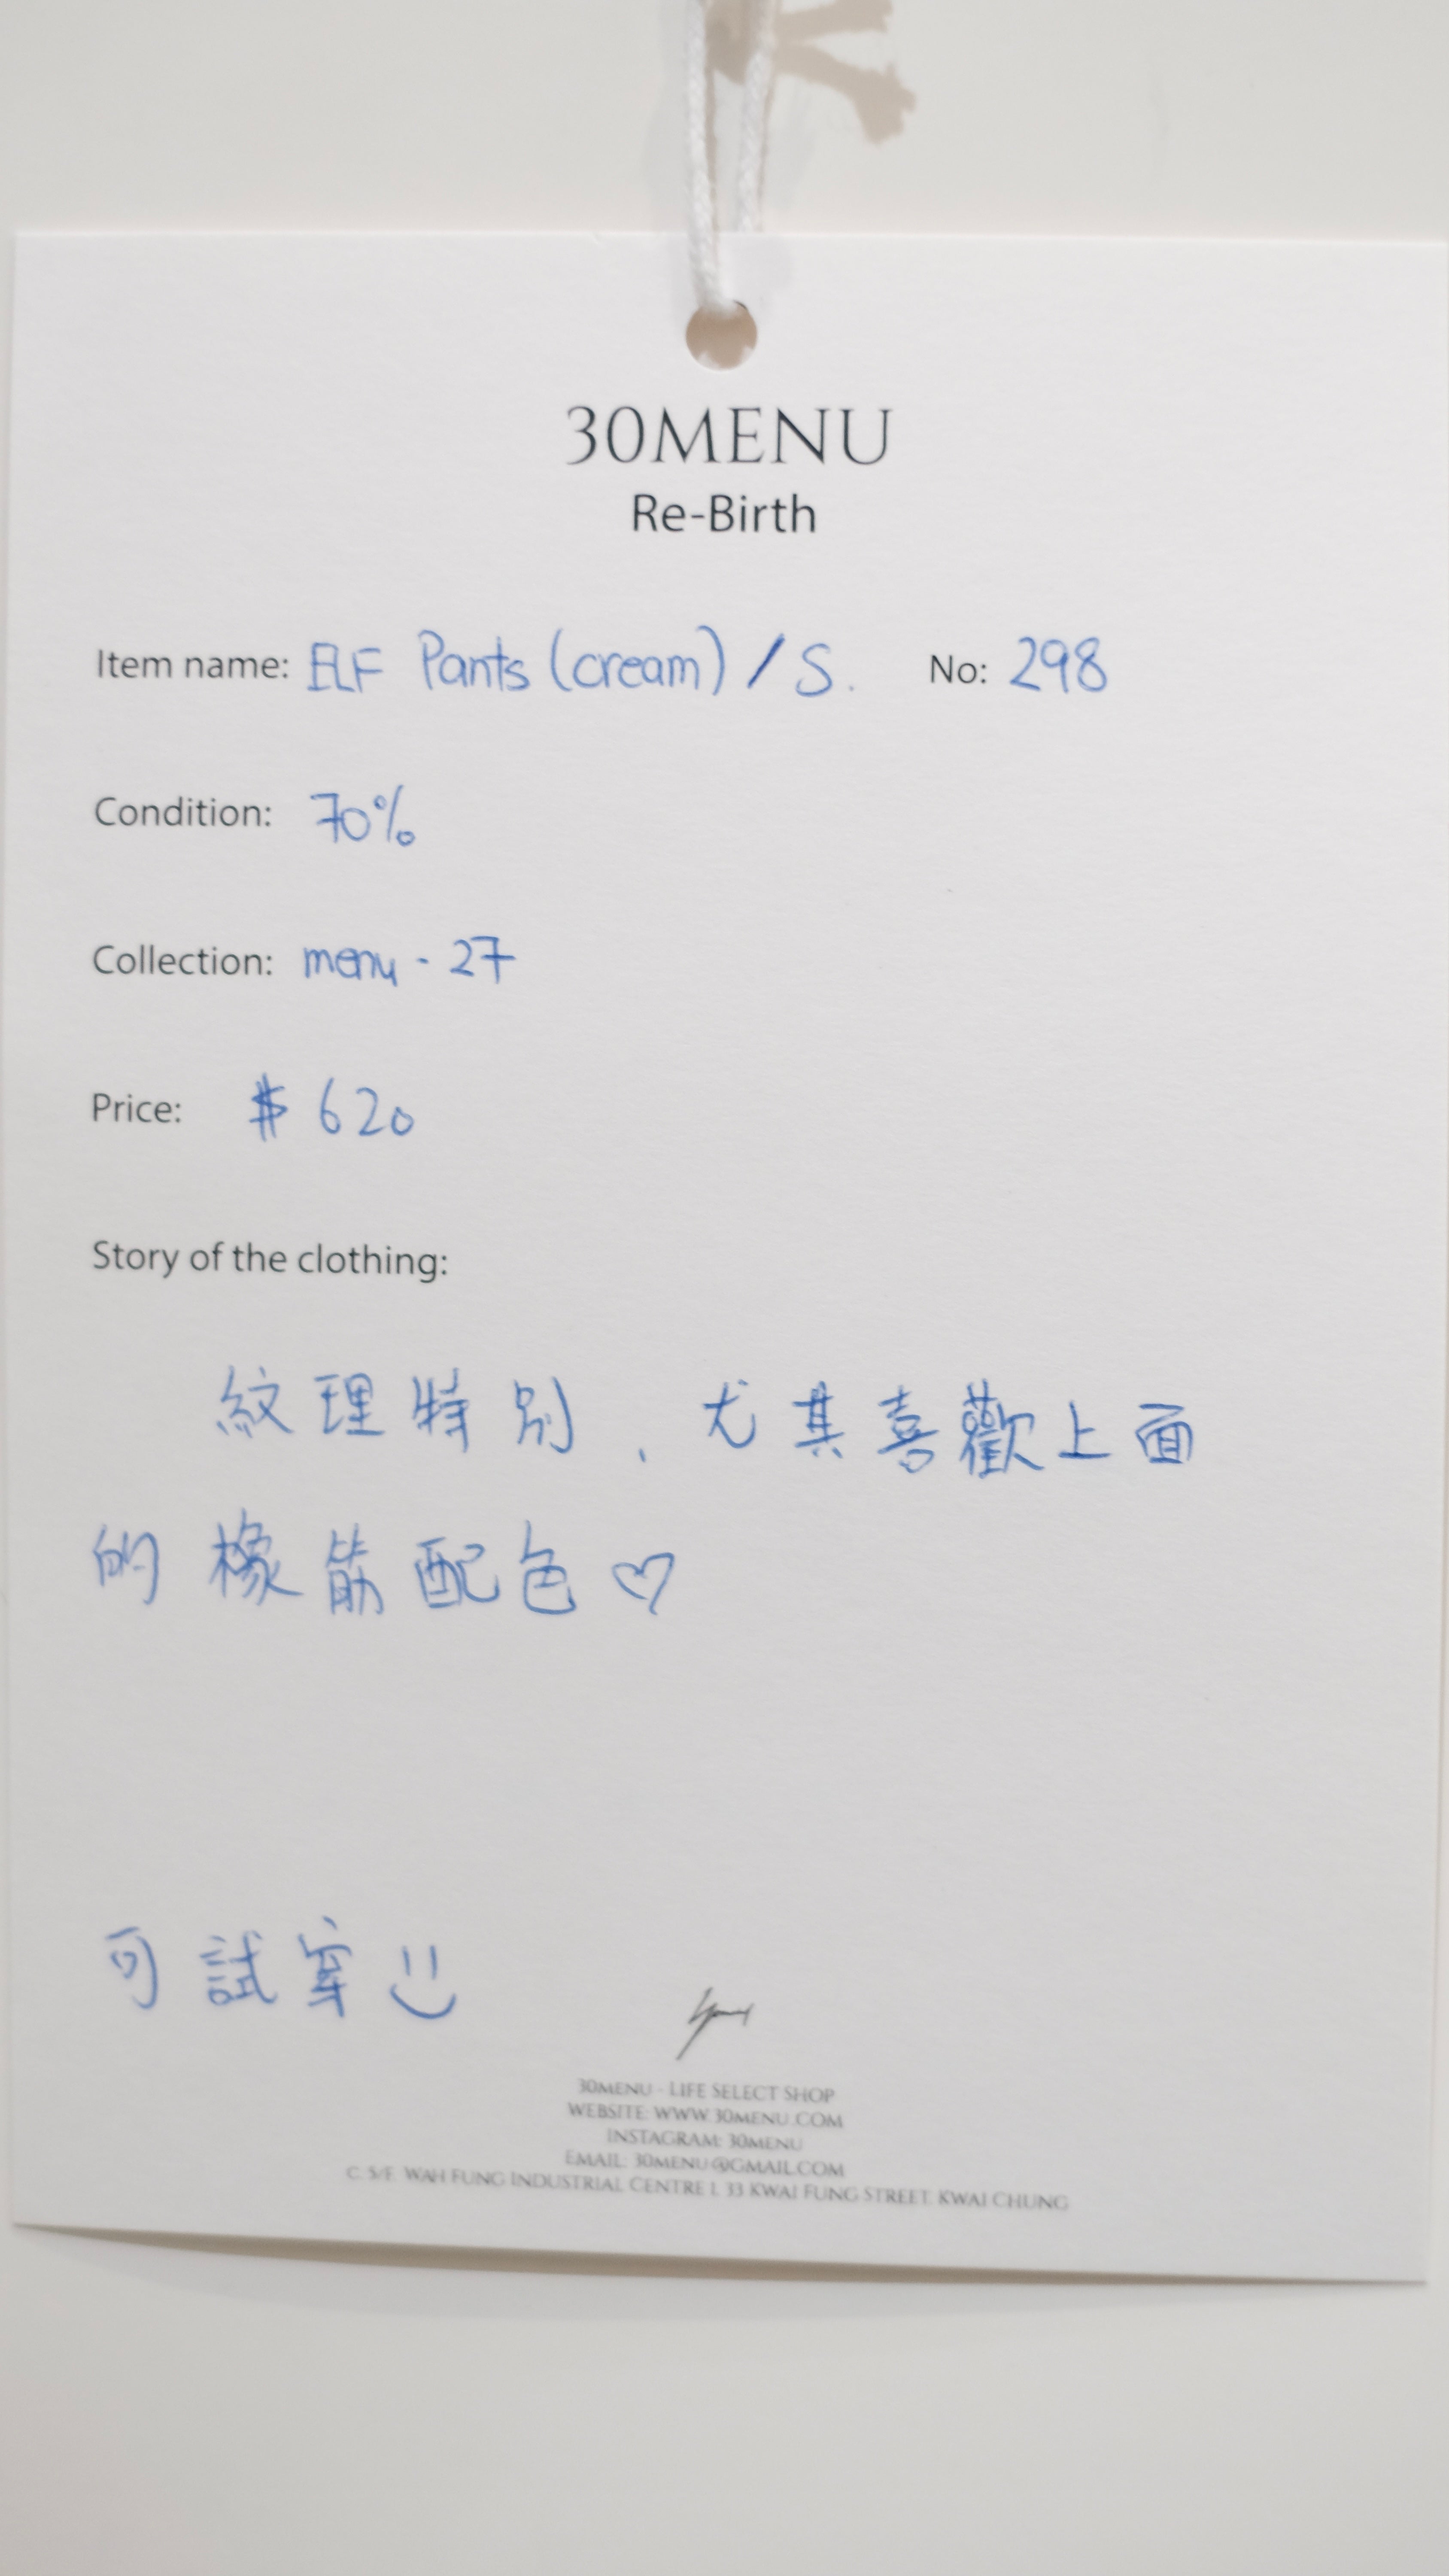 30MENU
Re-Birth
Item name: ELF Pants (cream) / S. No: 298
Condition: 70%
Collection: menu - 27
Price: $ 620
Story of the clothing:
紋理特別、尤其喜歡上面
的橡筋配色♡
可試穿
30MENU - LIFE SELECT SHOP
WEBSITE: WWW.30MENU.COM
INSTAGRAM: 30MENU
EMAIL: 30MENU@GMAIL.COM
C. 5/F. WAH FUNG INDUSTRIAL CENTRE 1. 33 KWAI FUNG STREET. KWAI CHUNG